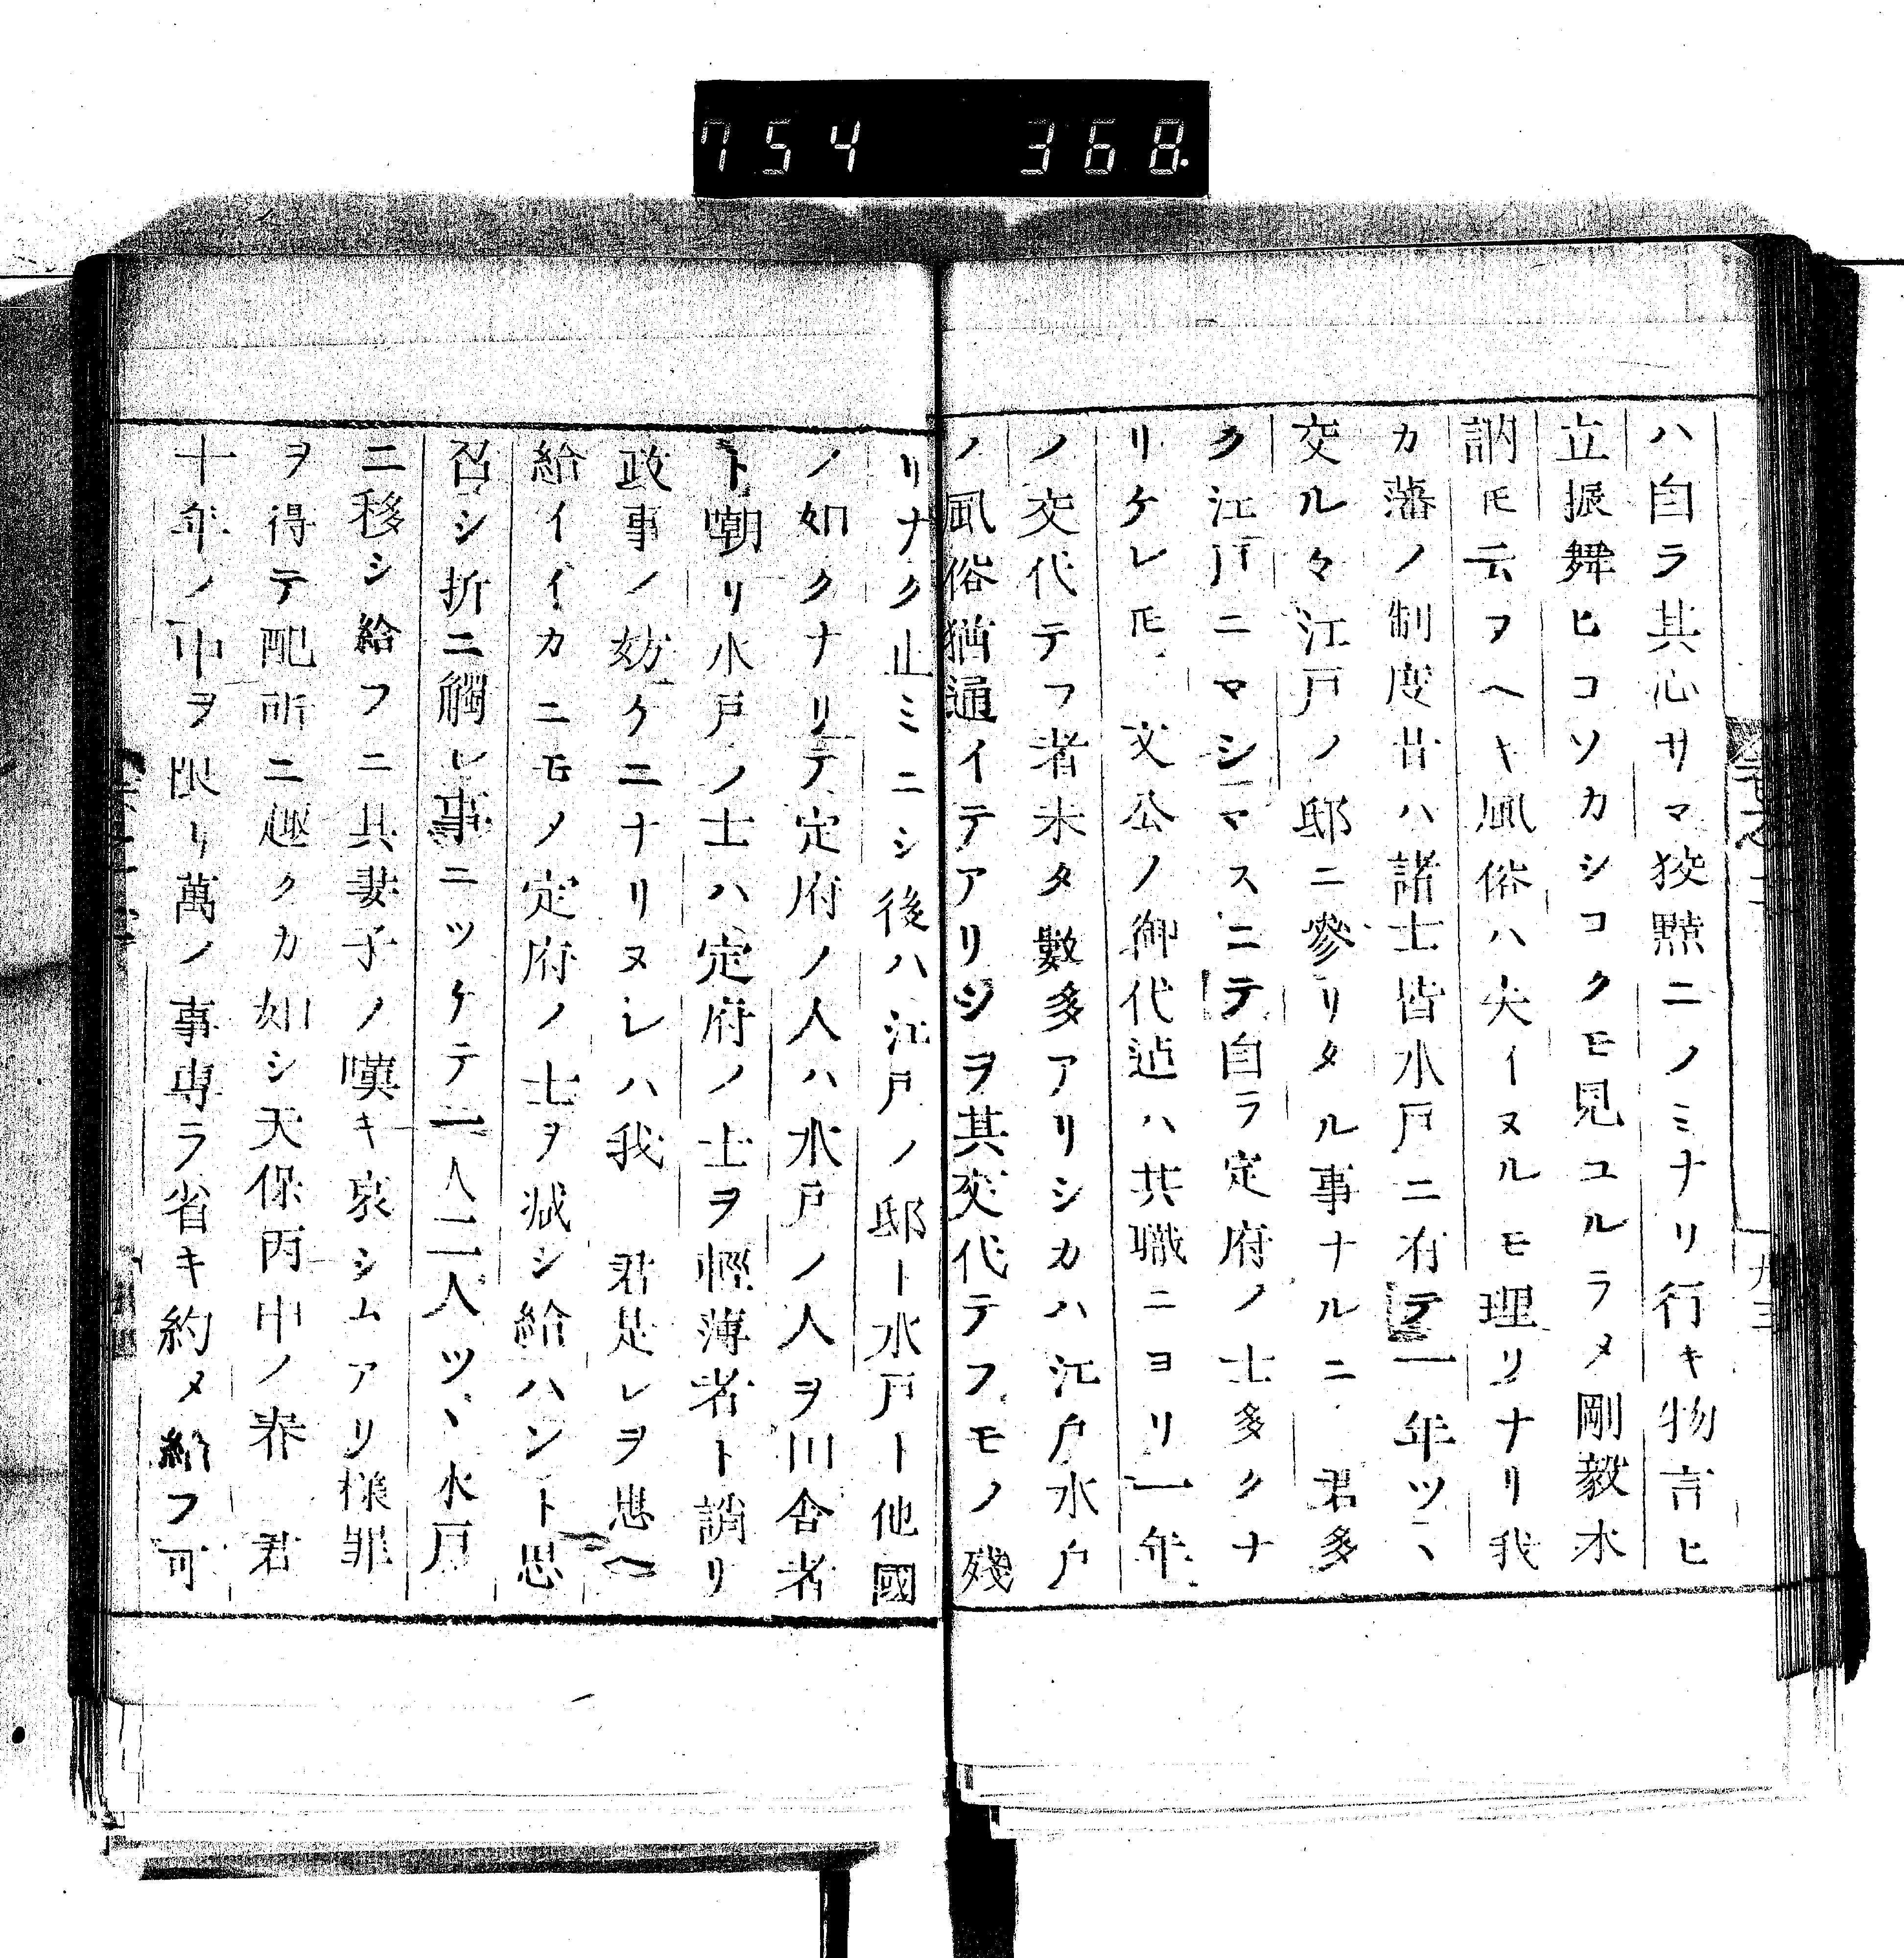 754 368
ハ自ラ其心サマ狡黠ニノミナリ行キ物言ヒ
立振舞ヒコソカシコクモ見ユルラメ剛毅木
訥𪜈云ヲヘキ風俗ハ失イヌルモ理リナリ我
カ藩ノ制度昔ハ諸士皆水戸ニ有テ一年ツヽ
交ル々江戸ノ邸ニ參リタル事ナルニ 君多
ク江戸ニマシマスニテ自ラ定府ノ士多クナ
リケレ𪜈 文公ノ御代迠ハ其職ニヨリ一年
ノ交代テフ者未タ數多アリシカハ江戸水戸
ノ風俗猶通イテアリシヲ其交代テフモノ殘
リナク止ミニシ後ハ江戸ノ邸ト水戸ト他國
ノ如クナリテ定府ノ人ハ水戸ノ人ヲ田舎者
ト嘲リ水戸ノ士ハ定府ノ士ヲ輕薄者ト誚リ
政事ノ妨ケニナリヌレハ我 君是レヲ患ヘ
給イイカニモノ定府ノ士ヲ减シ給ハント思
召シ折ニ觸レ事ニツケテ一人二人ツヽ水戸
ニ移シ給フニ其妻子ノ嘆キ哀シムアリ様罪
ヲ得テ配所ニ趣クカ如シ天保丙申ノ春 君
十年ノ中ヲ限リ萬ノ事専ラ省キ約メ給フ可